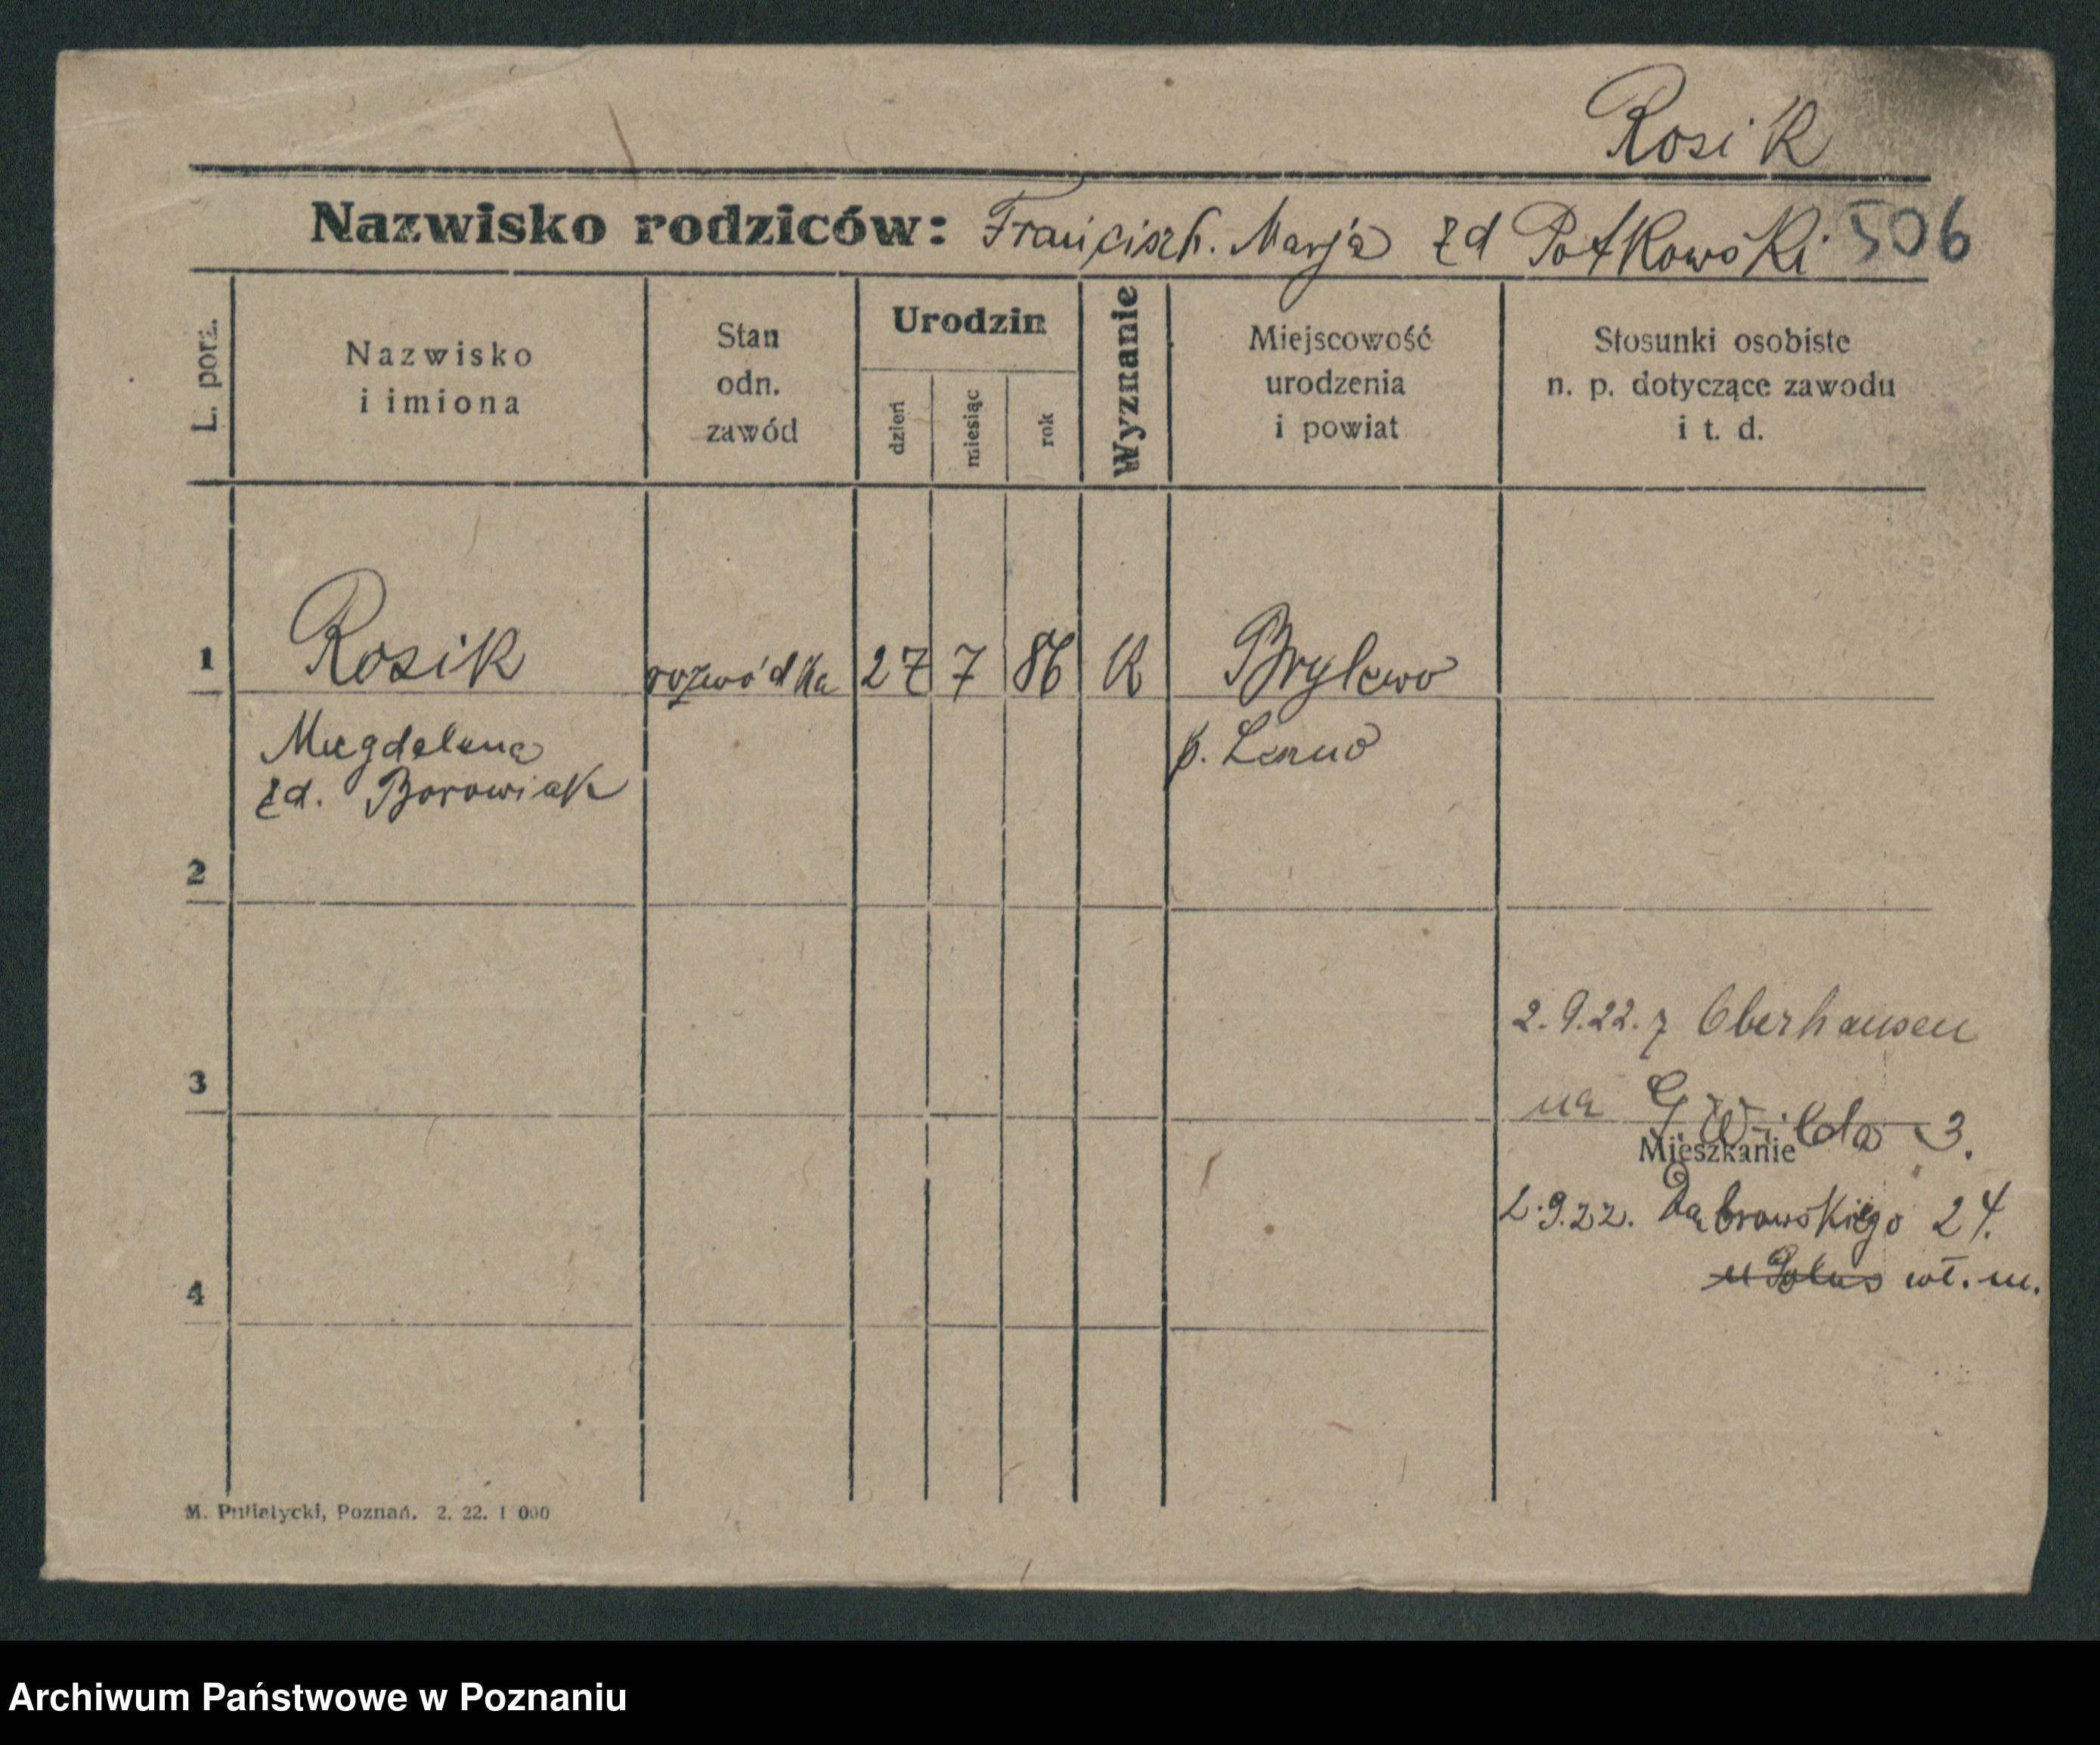 Rosik
Nazwisko rodziców: Francisch. Marja zd Potkowski 506
L. porz.
Nazwisko
i imiona
Stan
odn.
zawód
Urodzin
dzień
miesiąc
rok
Wyznanie
Miejscowość
urodzenia
i powiat
Stosunki osobiste
n. p. dotyczące zawodu
i t. d.
1 Rosik rozwódka 27 7 86 K Brylewo
Magdalena p.
zd. Borowiak
2
2.9.22. z Oberhausen
3 na G. Wilda 3.
Mieszkanie
2.9.22. Dąbrowskiego 24.
wł. m.
4
M. Putiatycki, Poznań. 2. 22. 1 000
Archiwum Państwowe w Poznaniu